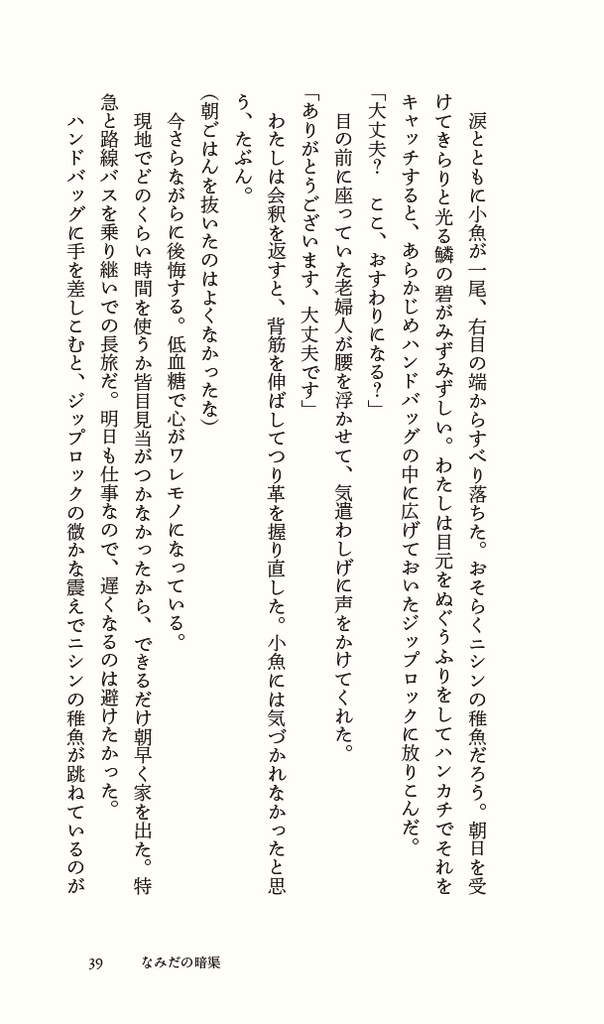 涙とともに小魚が一尾、右目の端からすべり落ちた。おそらくニシンの稚魚だろう。朝日を受
けてきらりと光る鱗の碧がみずみずしい。わたしは目元をぬぐうふりをしてハンカチでそれを
キャッチすると、あらかじめハンドバッグの中に広げておいたジップロックに放りこんだ。
「大丈夫？　ここ、おすわりになる？」
　目の前に座っていた老婦人が腰を浮かせて、気遣わしげに声をかけてくれた。
「ありがとうございます、大丈夫です」
　わたしは会釈を返すと、背筋を伸ばしてつり革を握り直した。小魚には気づかれなかったと思
う、たぶん。
（朝ごはんを抜いたのはよくなかったな）
　今さらながらに後悔する。低血糖で心がワレモノになっている。
　現地でどのくらい時間を使うか皆目見当がつかなかったから、できるだけ朝早く家を出た。特
急と路線バスを乗り継いでの長旅だ。明日も仕事なので、遅くなるのは避けたかった。
　ハンドバッグに手を差しこむと、ジップロックの微かな震えでニシンの稚魚が跳ねているのが
39　なみだの暗渠